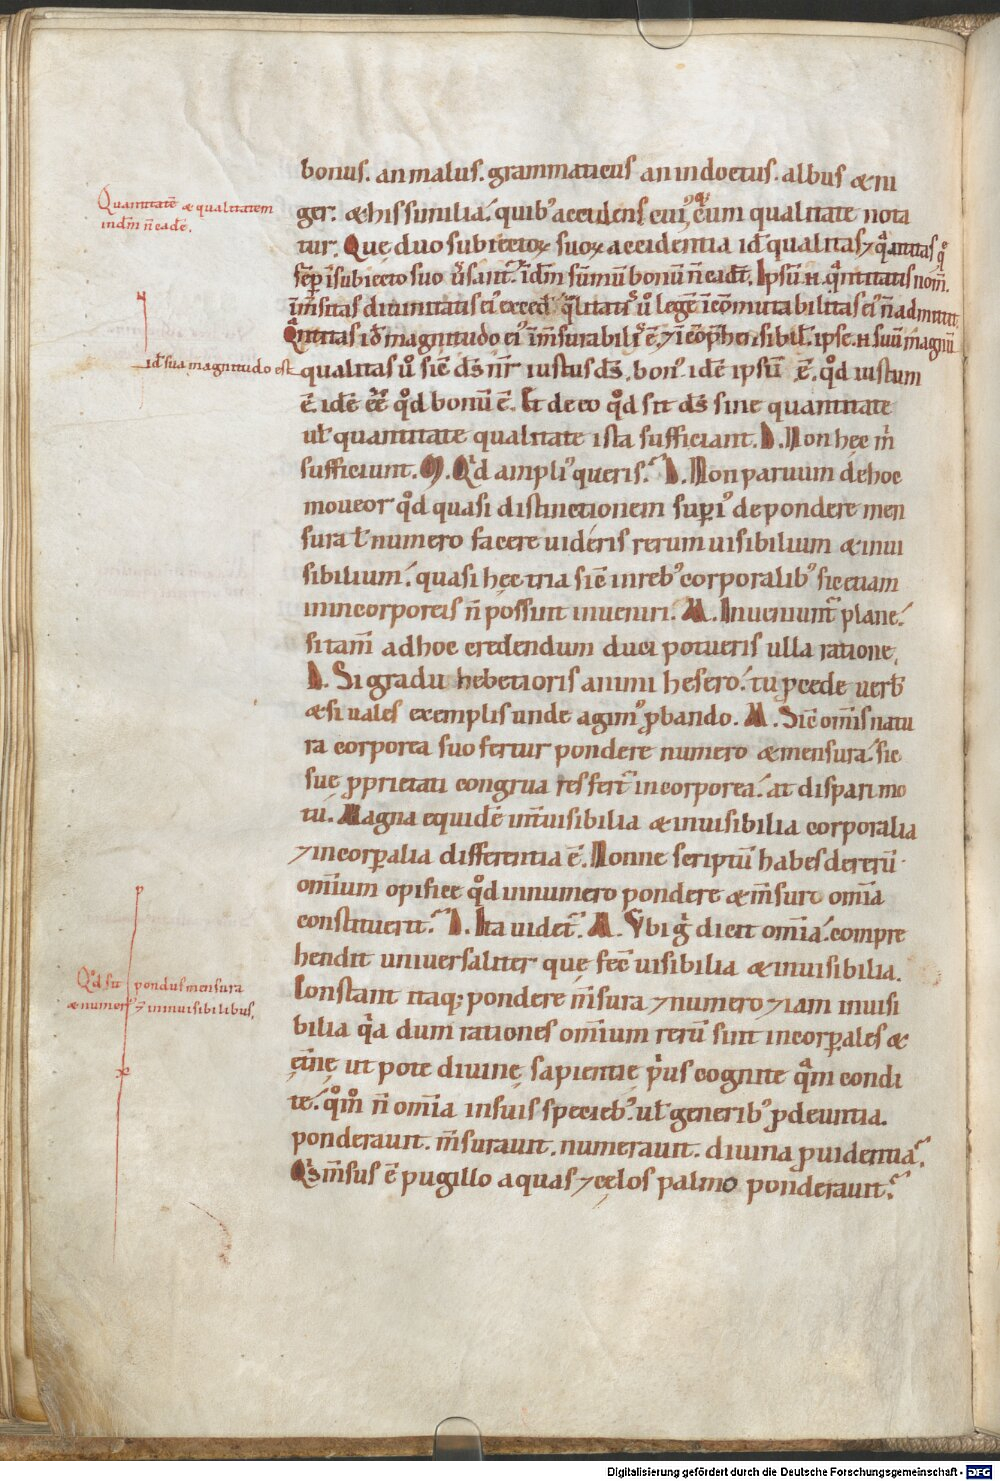 bonus. an malus. grammaticus an indoctus. albus & ni
Quantitatē & qualitatem
in dm̄ n̄ cadē.
ger. & his similia. quib' accidens cui'cūm qualitate nota
tur. Que duo subiectoꝝ suoꝝ accidentia id ē qualitas ⁊ q̄ntitas q̄
sēp ī subiecto suo ūsant̄. ī dm̄ sūmū bonū n̄ cadt̄. Ipsū .n. q̄ntitatis nom̄.
īm̄sitas diuinitatis ei' exced̄ q̄litatis ū legē īcōmutabilitas ei' n̄ admittit.
Q̄ntitas id ē magnitudo ei' īm̄surabilis ē, ⁊ īcōp̄hensibil'. ipse .n. suū magnū
id sua magnitudo est
qualitas ū sic̄ ds̄ nr̄ iustus ds̄. bon'. idē ipsū ē. qd̊ iustum
ē. idē eē qd̊ bonū ē. Et de eo qd̊ sit ds̄ sine quantitate
ul' quantitate qualitate ista sufficiant. D. Non hec m̄
sufficiunt. M. Qd̊ ampli' queris? D. Non paruum de hoc
moueor qd̊ quasi distinctionem supi' de pondere men
sura ł numero facere uideris rerum uisibilium & inui
sibilium. quasi hec tria sic̄ in reb' corporalib' sic etiam
in incorporeis n̄ possint inueniri. M. Inueniunt̄ plane.
si tam̄ ad hoc credendum duci potueris ulla ratione.
D. Si gradu hebetioris animi hesero. tu p̄cede uerb'
& si uales exemplis unde agim' p̄bando. M. Sic̄ om̄is natu
ra corporea suo fertur pondere numero & mensura. sic
sue p̄prietati congrua res fert̄ incorporea. at dispari mo
tu. Magna equidē int̄ uisibilia & inuisibilia corporalia
⁊ incorp̄alia differentia ē. Nonne scriptū habes de rerū
om̄ium opifice qd̊ in numero pondere & m̄sura om̄ia
constituerit? D. Ita uidet̄. M. Vbi g̊ dicit om̄ia. compre
hendit uniuersaliter que fec̄ uisibilia & inuisibilia.
Qd̊ sit pondus mensura
& numer' ⁊ in inuisibilibus.
Constant itaq; pondere m̄sura ⁊ numero ⁊iam inuisi
bilia q̄a dum rationes om̄ium rerū sint incorp̄ales &
et̄ne ut pote diuine sapientie p̄us cognite q̄m condi
te. q̊m̊ n̄ om̄ia in suis specieb'. ul' generib' p̄deuntia.
ponderauit. m̄surauit. numerauit. diuina p̄uidentia?
Q̄s m̄sus ē pugillo aquas ⁊ celos palmo ponderauit?
Digitalisierung gefördert durch die Deutsche Forschungsgemeinschaft - DFG